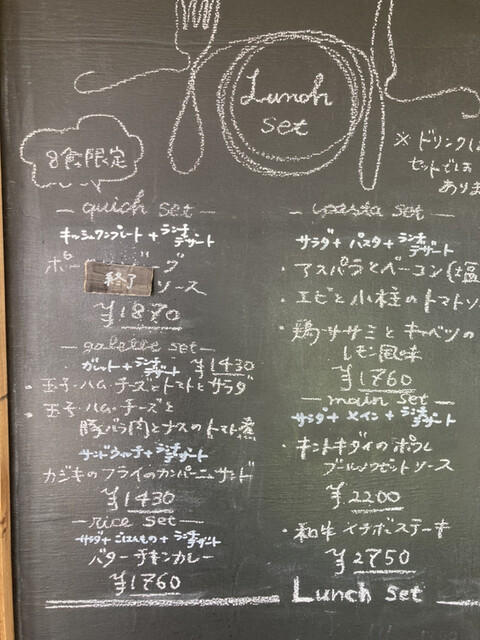 Lunch
set
8食限定
※ドリンクは
セットでは
ありま
— quich set —
キッシュワンプレート + ランチデザート
終了
ソース
¥1870
— galette set —
ガレット + ランチデザート ¥1430
・玉子・ハム・チーズとトマトとサラダ
・玉子・ハム・チーズと
豚バラ肉とナスのトマト煮
サンドウィッチ + ランチデザート
カジキのフライのカンパーニュサンド
¥1430
— rice set —
サラダ + ごはんもの + ランチデザート
バターチキンカレー
¥1760
— pasta set —
サラダ + パスタ + ランチデザート
・アスパラとベーコン(塩
・エビと小柱のトマトソ
・鶏ササミとキャベツの
レモン風味
¥1760
— main set —
サラダ + メイン + ランチデザート
・キントキダイのポワレ
ブールノワゼットソース
¥2200
・和牛イチボステーキ
¥2750
Lunch set